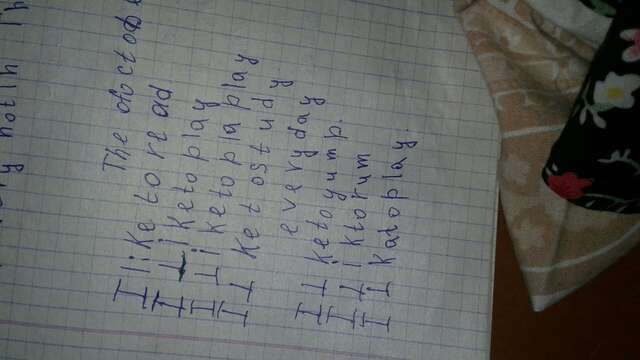 The
I li Ke to re ad
I L i Ke to play
I I i Ke to pla play
I I Ke t o s t u d y
every day
I I Ke to yump.
I I i K to rum
I I i Ka to play.